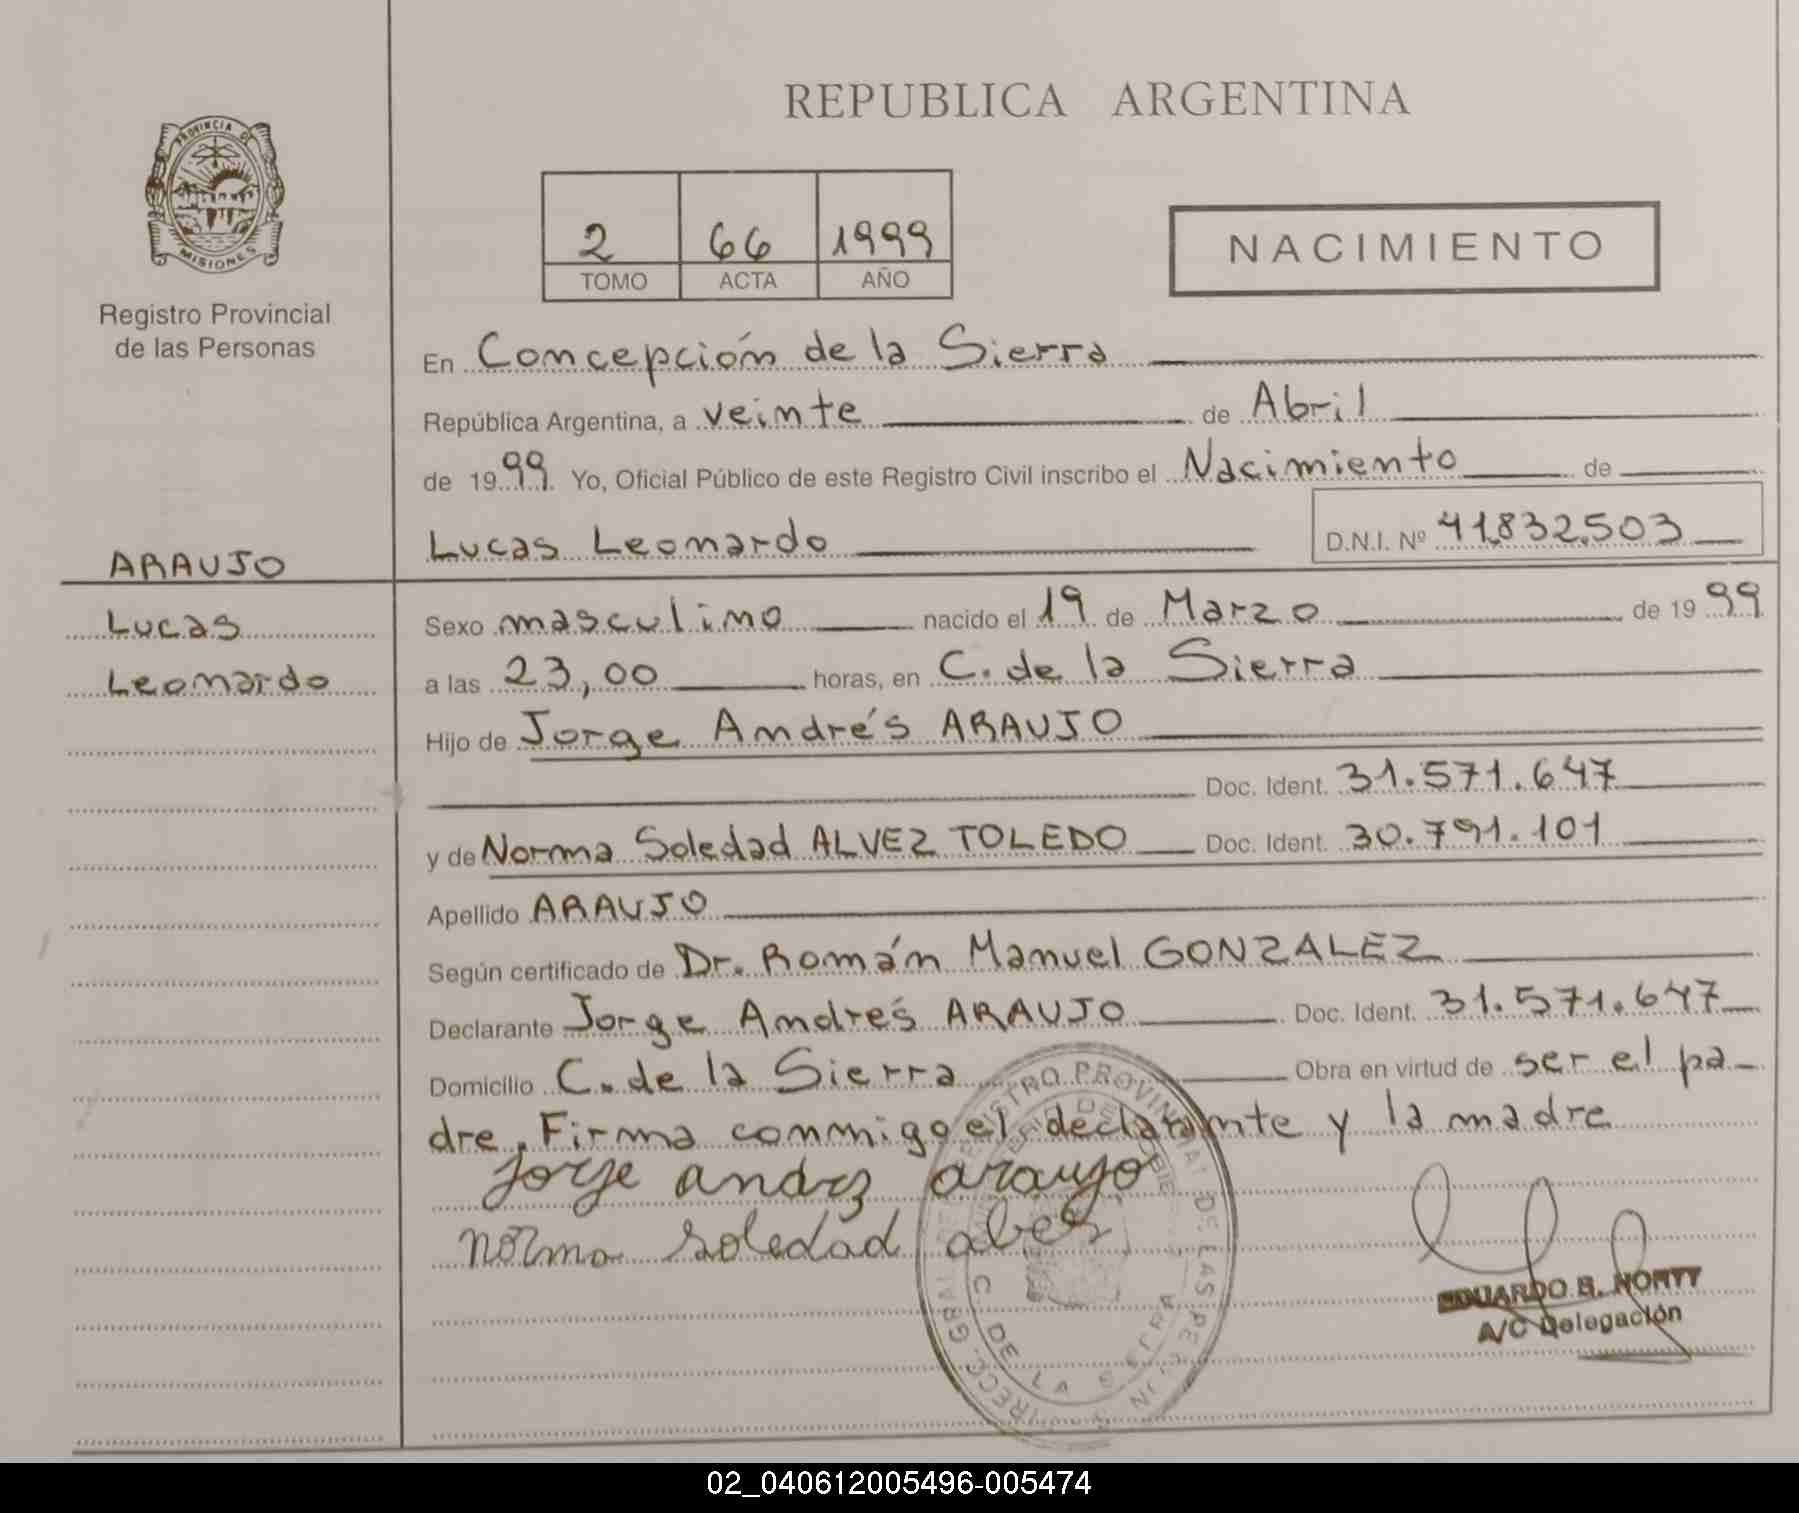 REPUBLICA ARGENTINA
PROVINCIA DE
MISIONES
Registro Provincial
de las Personas
2 66 1999
TOMO ACTA AÑO
NACIMIENTO
En Concepción de la Sierra
República Argentina, a veinte de Abril
de 1999 Yo, Oficial Público de este Registro Civil inscribo el Nacimiento de
Lucas Leonardo D.N.I. Nº 41.832.503
ARAUJO
Lucas
Leonardo
Sexo masculino nacido el 19 de Marzo de 1999
a las 23,00 horas, en C. de la Sierra
Hijo de Jorge Andrés ARAUJO
Doc. Ident. 31.571.647
y de Norma Soledad ALVEZ TOLEDO Doc. Ident. 30.791.101
Apellido ARAUJO
Según certificado de Dr. Román Manuel GONZALEZ
Declarante Jorge Andrés ARAUJO Doc. Ident. 31.571.647
Domicilio C. de la Sierra Obra en virtud de ser el pa-
dre. Firma conmigo el declarante y la madre
Jorge andrez araujo
norma soledad albes
REGISTRO PROVINCIAL DE LAS PER
C DE LA SIERRA
EDUARDO B. NORTY
A/C Delegación
02_040612005496-005474